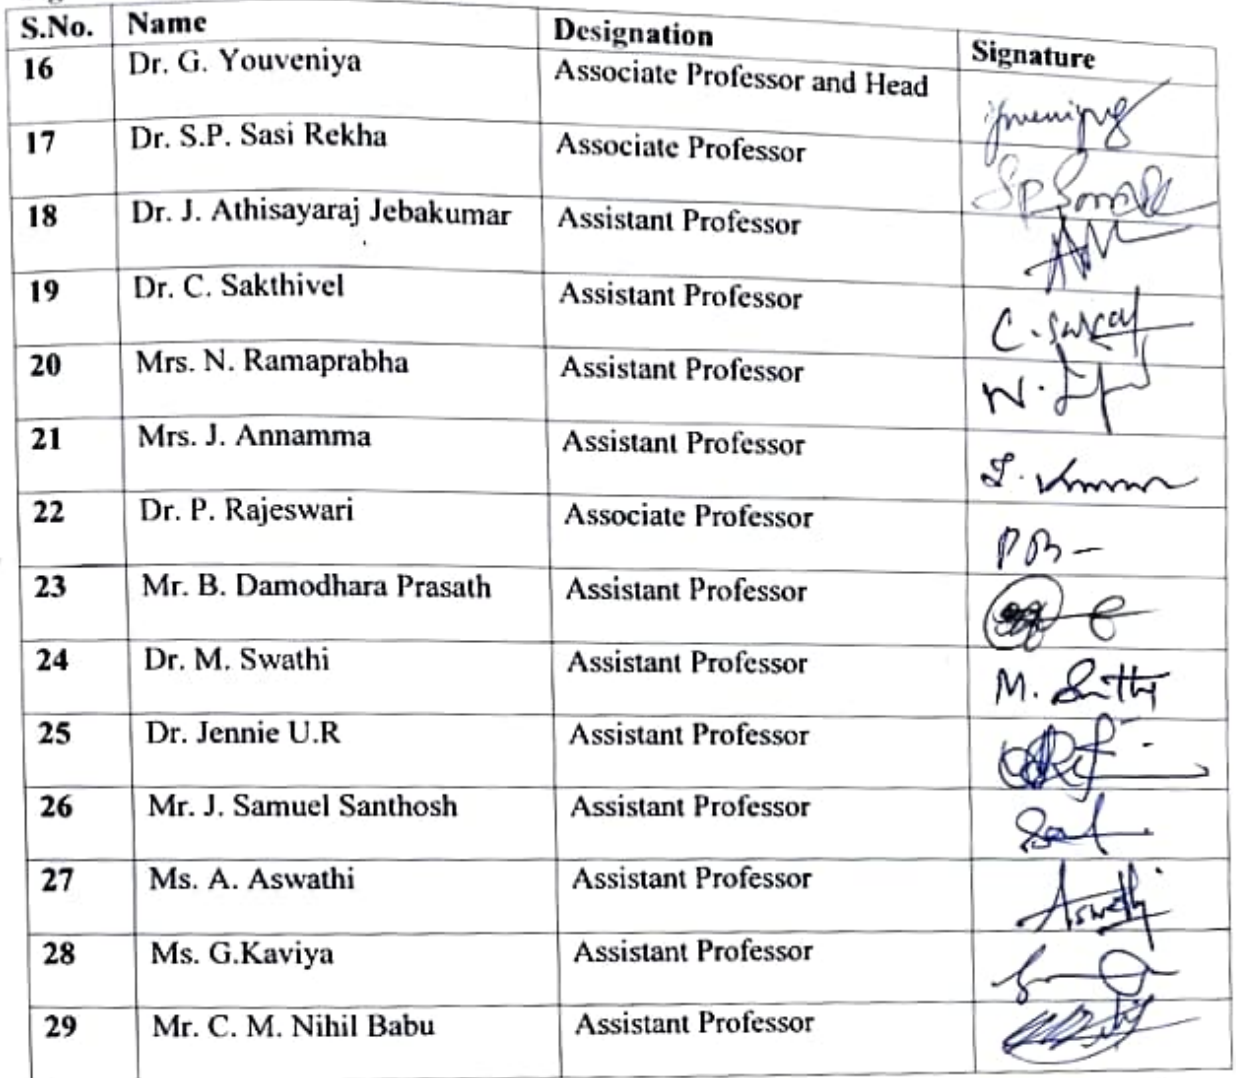 S.No. Name Designation Signature
16 Dr. G. Youveniya Associate Professor and Head
17 Dr. S.P. Sasi Rekha Associate Professor
18 Dr. J. Athisayaraj Jebakumar Assistant Professor
19 Dr. C. Sakthivel Assistant Professor C.
20 Mrs. N. Ramaprabha Assistant Professor N.
21 Mrs. J. Annamma Assistant Professor
22 Dr. P. Rajeswari Associate Professor
23 Mr. B. Damodhara Prasath Assistant Professor
24 Dr. M. Swathi Assistant Professor M.
25 Dr. Jennie U.R Assistant Professor
26 Mr. J. Samuel Santhosh Assistant Professor
27 Ms. A. Aswathi Assistant Professor
28 Ms. G.Kaviya Assistant Professor
29 Mr. C. M. Nihil Babu Assistant Professor